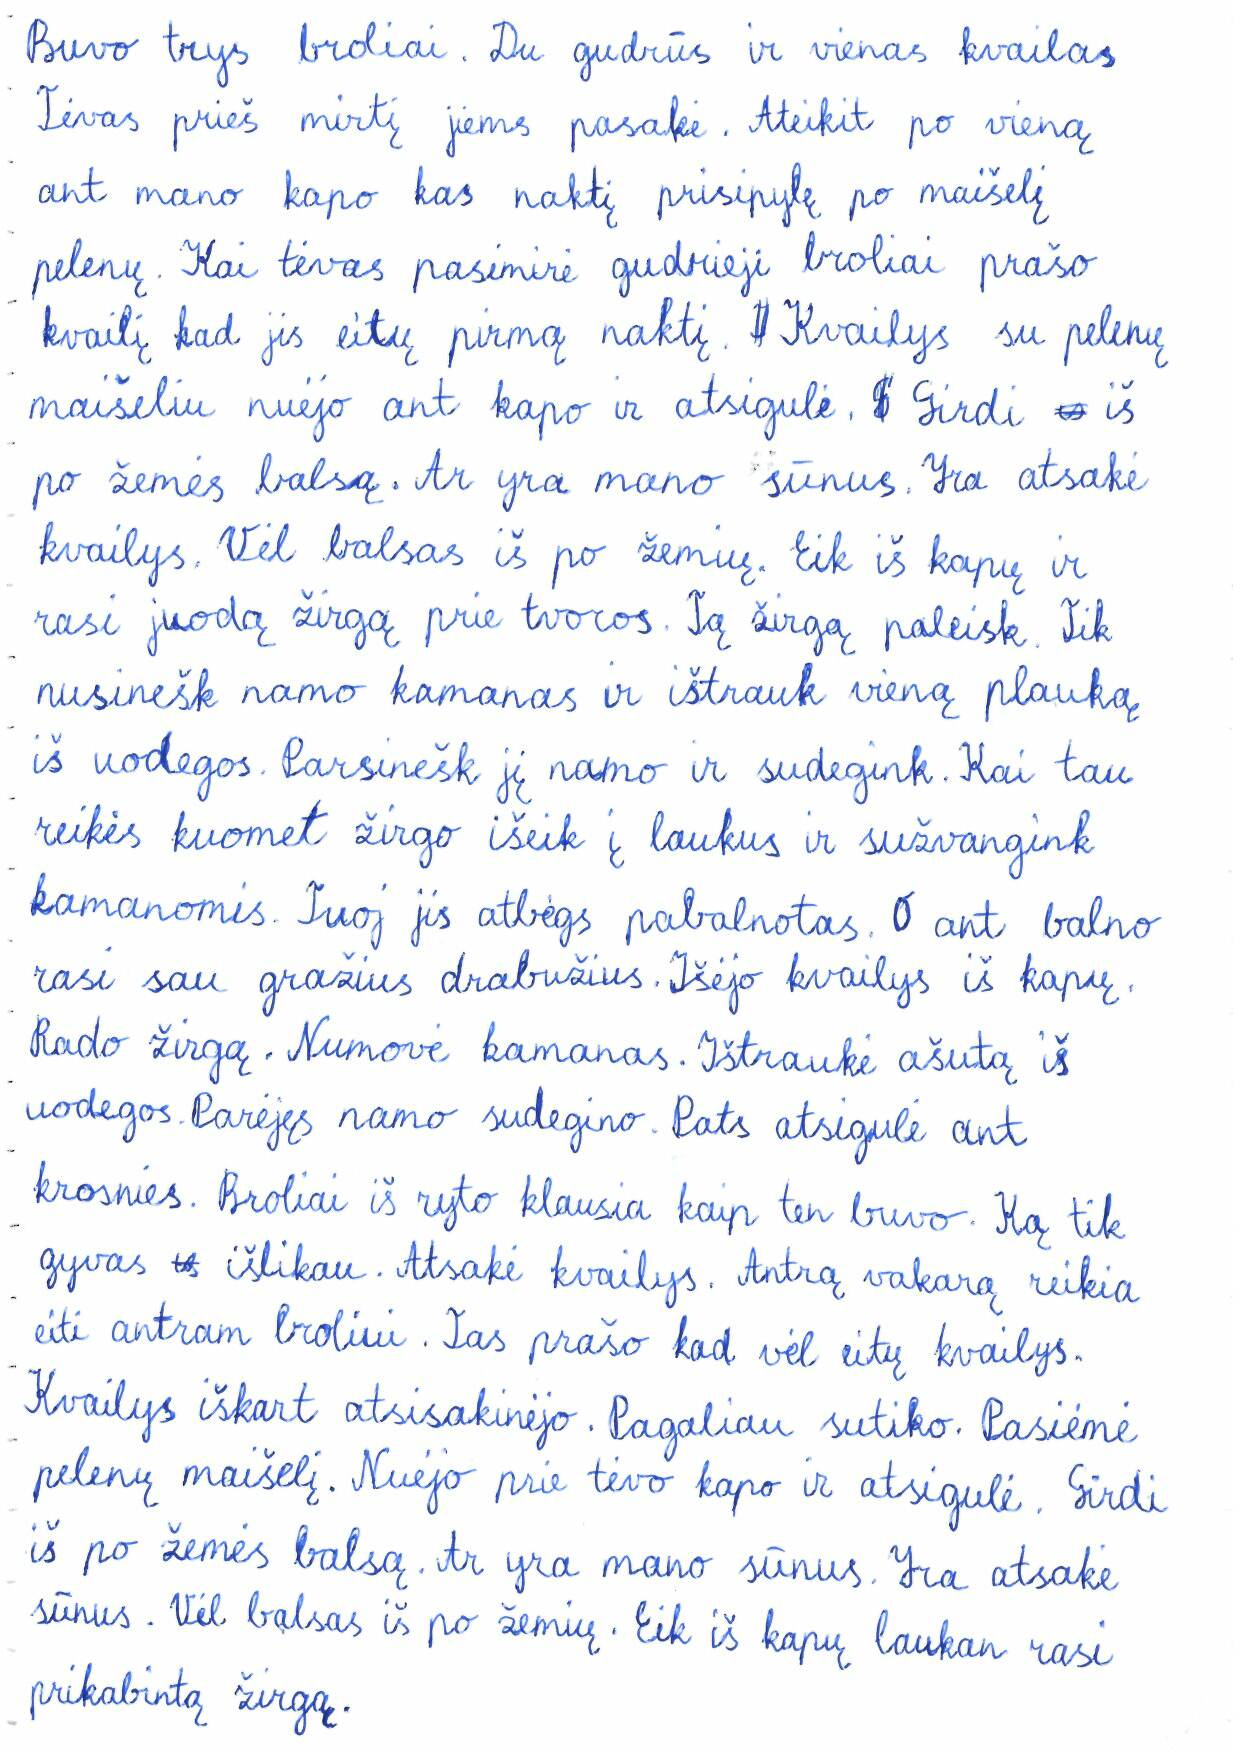 Buvo trys broliai. Du gudrūs ir vienas kvailas
Tėvas prieš mirtį jiems pasakė. Ateikit po vieną
ant mano kapo kas naktį prisipylę po maišelį
pelenų. Kai tėvas pasimirė gudrieji broliai prašo
kvailį kad jis eitų pirmą naktį. Kvailys su pelenų
maišeliu nuėjo ant kapo ir atsigulė. Girdi iš
po žemės balsą. Ar yra mano sūnus. Yra atsakė
kvailys. Vėl balsas iš po žemių. Eik iš kapų ir
rasi juodą žirgą prie tvoros. Tą žirgą paleisk. Tik
nusinešk namo kamanas ir ištrauk vieną plauką
iš uodegos. Parsinešk jį namo ir sudegink. Kai tau
reikės kuomet žirgo išeik į laukus ir sužvangink
kamanomis. Tuoj jis atbėgs pabalnotas. O ant balno
rasi sau gražius drabužius. Išėjo kvailys iš kapų.
Rado žirgą. Numovė kamanas. Ištraukė ašutą iš
uodegos. Parėjęs namo sudegino. Pats atsigulė ant
krosnies. Broliai iš ryto klausia kaip ten buvo. Ką tik
gyvas išlikau. Atsakė kvailys. Antrą vakarą reikia
eiti antram broliui. Tas prašo kad vėl eitų kvailys.
Kvailys iškart atsisakinėjo. Pagaliau sutiko. Pasiėmė
pelenų maišelį. Nuėjo prie tėvo kapo ir atsigulė. Girdi
iš po žemės balsą. Ar yra mano sūnus. Yra atsakė
sūnus. Vėl balsas iš po žemių. Eik iš kapų laukan rasi
prikabintą žirgą.